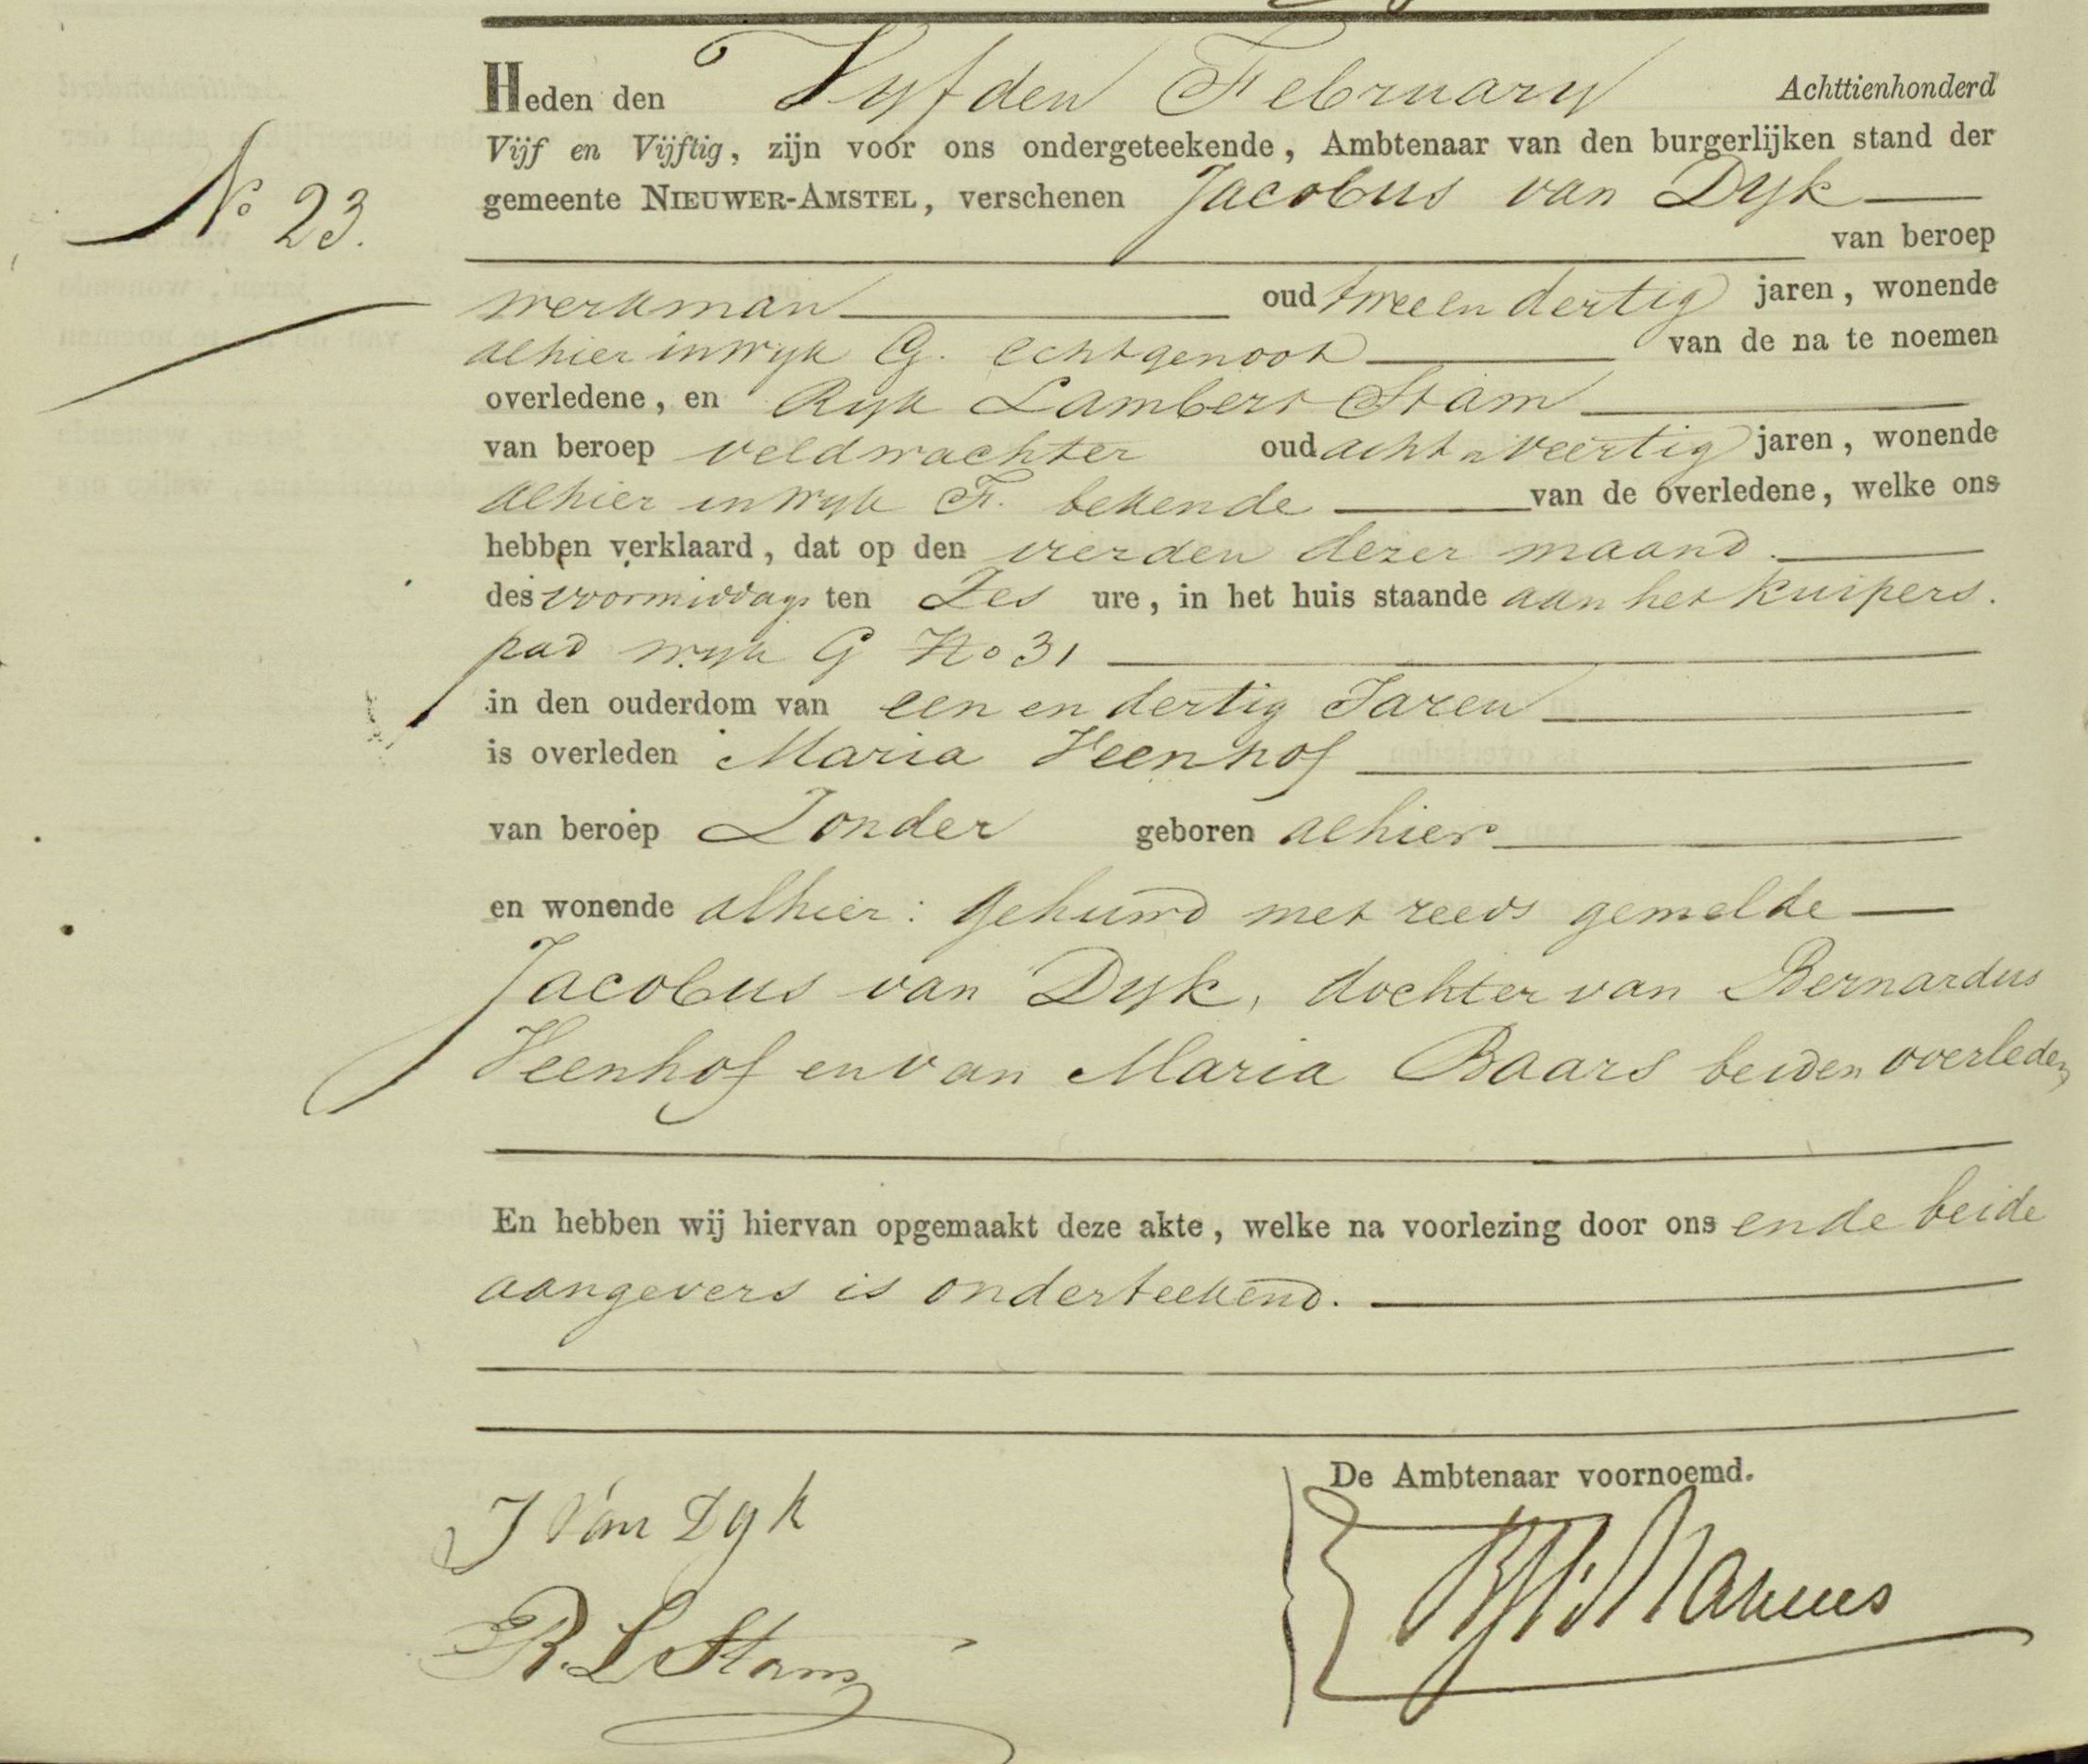 Heden den Vyfden February Achttienhonderd
Vijf en Vijftig, zijn voor ons ondergeteekende, Ambtenaar van den burgerlijken stand der
No 23.
gemeente NIEUWER-AMSTEL, verschenen Jacobus van Dyk
van beroep
werkman oud twee en dertig jaren, wonende
alhier in wyk G. echtgenoot van de na te noemen
overledene, en Ryk Lambert Stam
van beroep veldwachter oud acht n veertig jaren, wonende
alhier in wyk F. bekende van de overledene, welke ons
hebben verklaard, dat op den vierden dezer maand
des voormiddags ten Zes ure, in het huis staande aan het Kuipers.
pad wyk G No 31
in den ouderdom van een en dertig Jaren
is overleden Maria Veenhof
van beroep Zonder geboren alhier
en wonende alhier: gehuwd met reeds gemelde
Jacobus van Dyk, dochter van Bernardus
Veenhof en van Maria Baars beiden overleden
En hebben wij hiervan opgemaakt deze akte, welke na voorlezing door ons en de beide
aangevers is onderteekend.
De Ambtenaar voornoemd.
J Van Dyk
R. L Stam